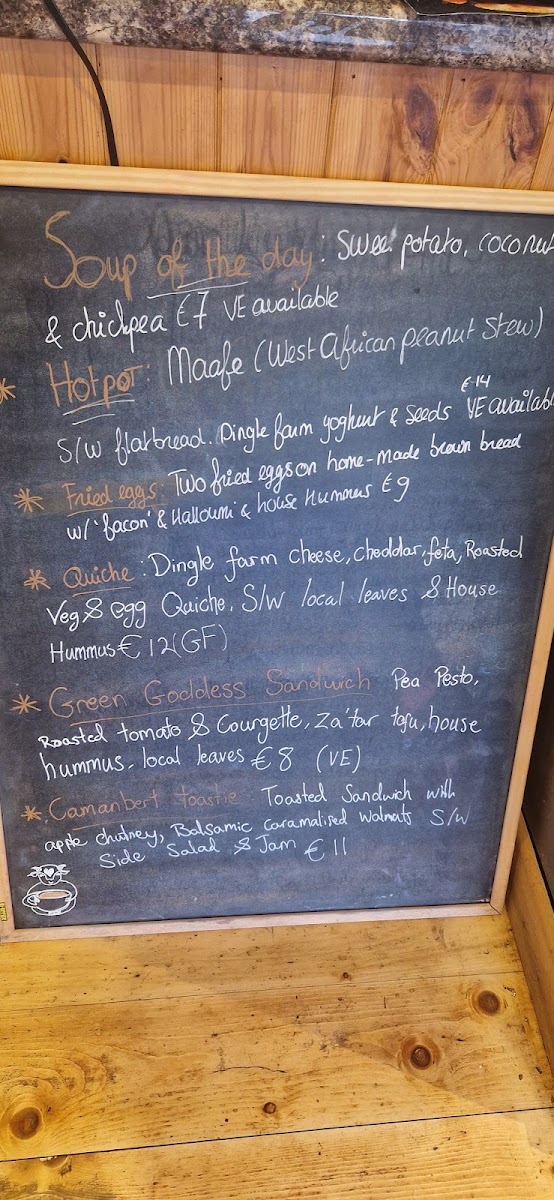 Soup of the day: Sweet potato, coconut
& chickpea €7 VE available
* Hotpot: Maafe (West African peanut stew)
€14
S/W flatbread. Dingle farm yoghurt & seeds VE available
* Fried eggs: Two fried eggs on home-made brown bread
w/ 'facon' & Halloumi & house Hummus €9
* Quiche: Dingle farm cheese, cheddar, feta, Roasted
Veg & egg Quiche. S/W local leaves & House
Hummus €12 (GF)
* Green Goddess Sandwich Pea Pesto,
Roasted tomato & Courgette, Za'tar tofu, house
hummus, local leaves €8 (VE)
* Camanbert toastie: Toasted Sandwich with
apple chutney, Balsamic Caramalised Walnuts S/W
Side Salad & Jam €11